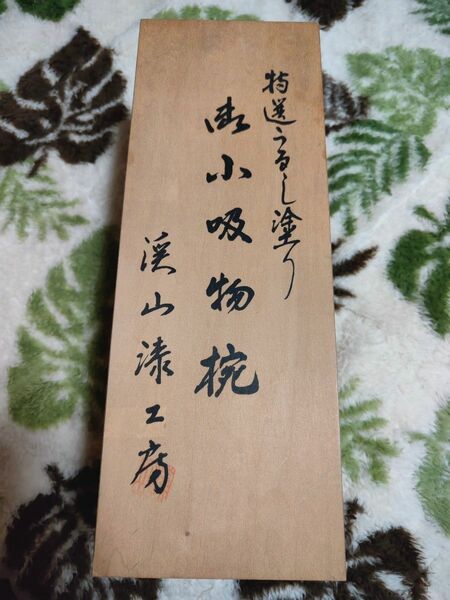 特選うるし塗り
御小吸物椀
渓山漆工房